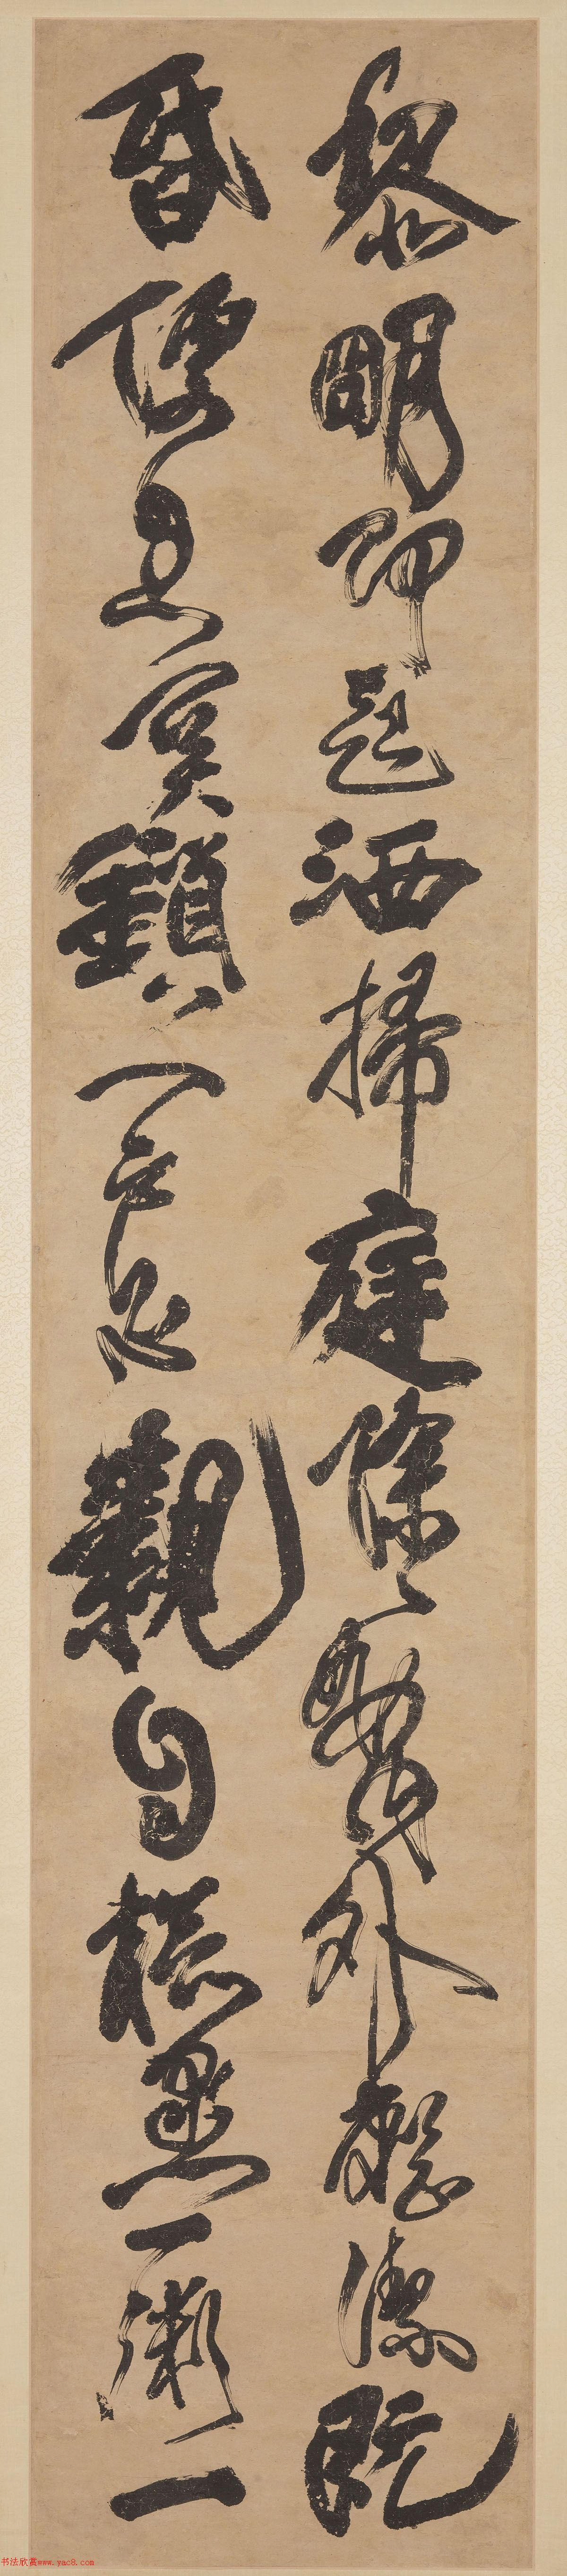 黎明即起洒掃庭除要內外整潔既
昏便息關鎖門戶必親自檢點一粥一
书法欣赏www.yac8.com